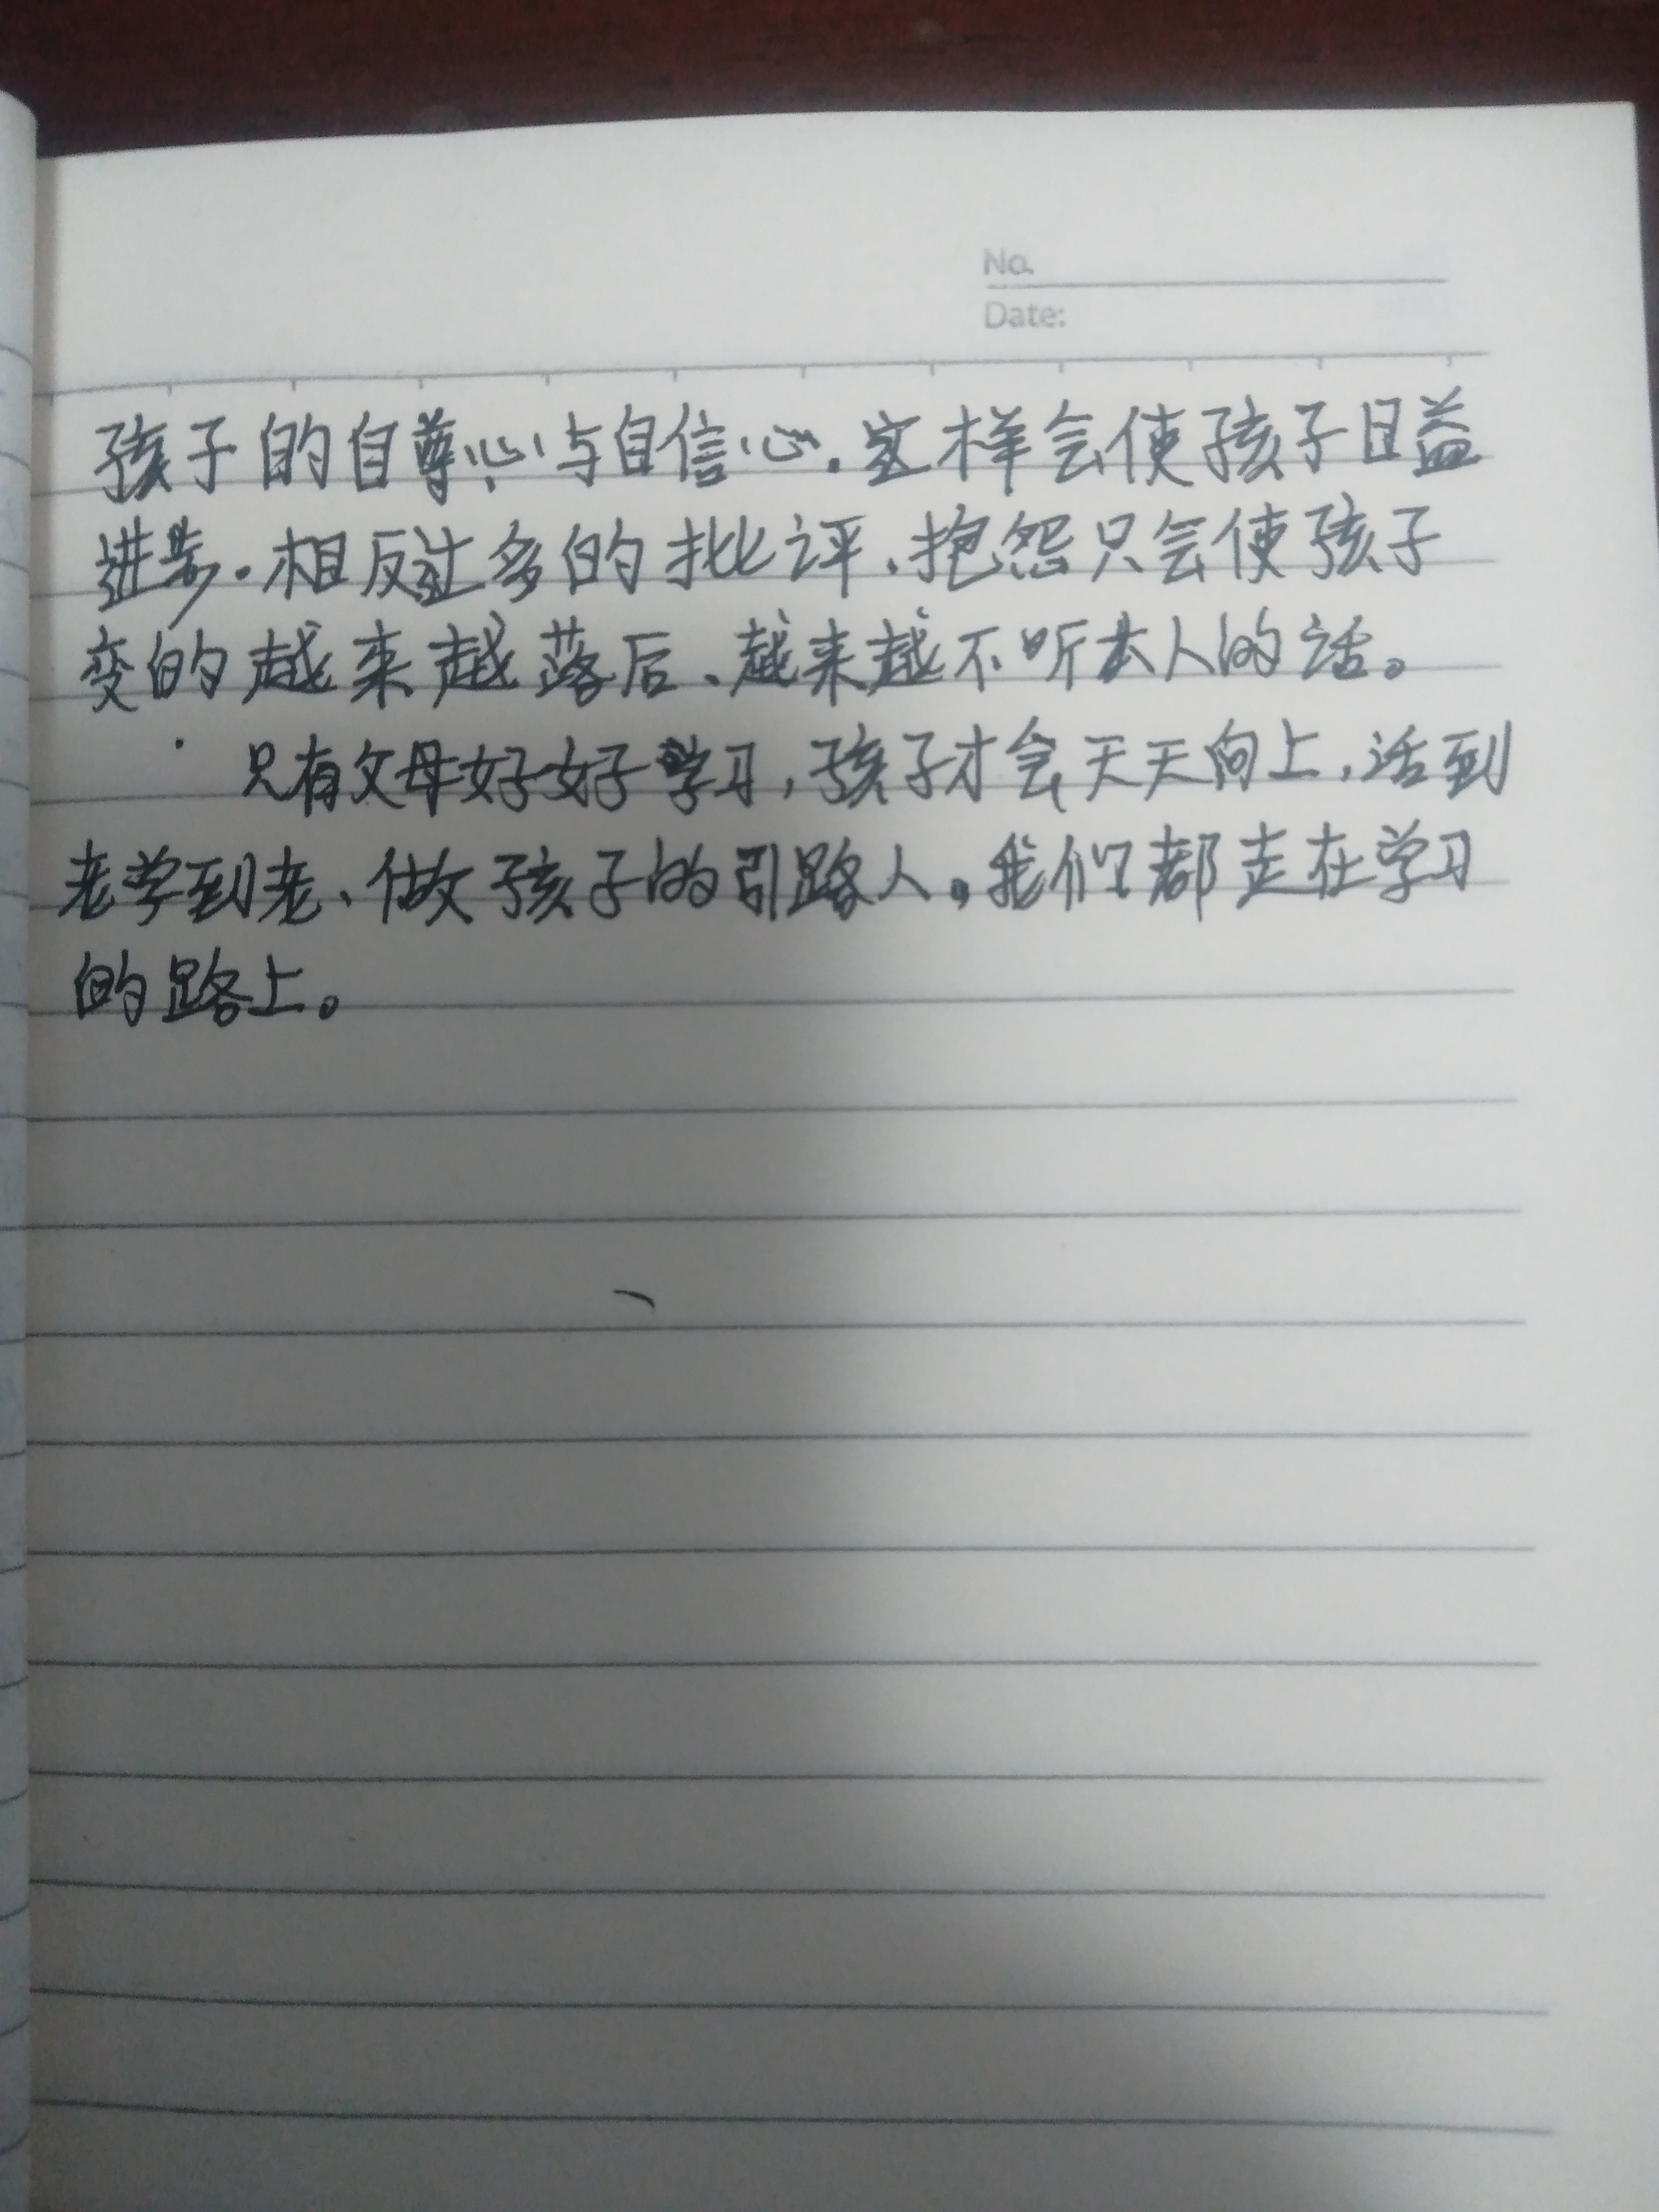 No.
Date:
孩子的自尊心与自信心.这样会使孩子日益
进步.相反过多的批评、抱怨只会使孩子
变的越来越落后、越来越不听大人的话。
只有父母好好学习,孩子才会天天向上,活到
老学到老、做孩子的引路人。我们都走在学习
的路上。